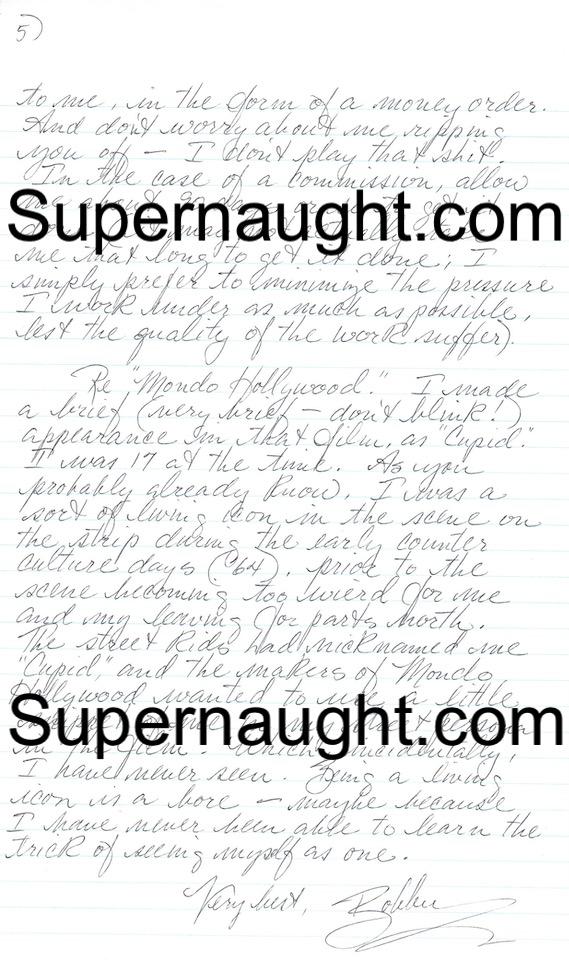 5)
to me, in the form of a money order.
And don't worry about me ripping
you off — I don't play that shit.
In the case of a commission, allow
Supernaught.com
me that long to get it done; I
simply prefer to minimize the pressure
I work under as much as possible,
lest the quality of the work suffer).
Re "Mondo Hollywood." I made
a brief (very brief — don't blink!)
appearance in that film, as "Cupid."
I was 17 at the time. As you
probably already know, I was a
sort of living icon in the scene on
the strip during the early counter
culture days ('64), prior to the
scene becoming too wierd for me
and my leaving for parts north.
The street kids had nicknamed me
"Cupid," and the makers of Mondo
Hollywood wanted to use a little
Supernaught.com
in the film. Which, incidentally,
I have never seen. Being a living
icon is a bore — maybe because
I have never been able to learn the
trick of seeing myself as one.
Very best, Bobby